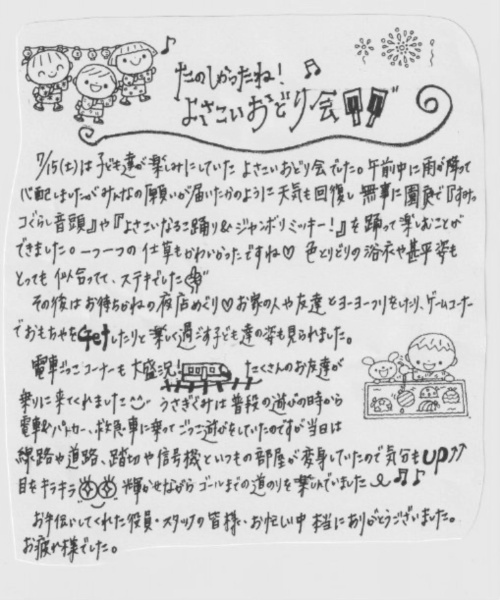 たのしかったね!
よさこいおどり会
7/15(土)は子ども達が楽しみにしていた よさこいおどり会でした。午前中に雨が降って
心配しましたがみんなの願いが届いたかのように天気も回復し 無事に園庭で『すみっ
コぐらし音頭』や『よさこいなるこ踊り&ジャンボリミッキー!』を踊って楽しむことが
できました。一つ一つの仕草もかわいかったですね♡ 色とりどりの浴衣や甚平姿も
とっても似合ってて、ステキでした
その後はお待ちかねの夜店めぐり♡お家の人や友達とヨーヨーつりをしたり、ゲームコーナー
でおもちゃをGetしたりと楽しく過ごす子ども達の姿も見られました。
電車ごっこコーナーも大盛況! たくさんのお友達が
乗りに来てくれました うさぎぐみは普段の遊びの時から
電車やパトカー、救急車に乗ってごっこ遊びをしていたのですが当日は
線路や道路、踏切や信号機といつもの部屋が変身していたので気分もup↑↑
目をキラキラ 輝かせながらゴールまでの道のりを楽しんでいました♪♪
お手伝いしてくれた役員・スタッフの皆様・お忙しい中 本当にありがとうございました。
お疲れ様でした。